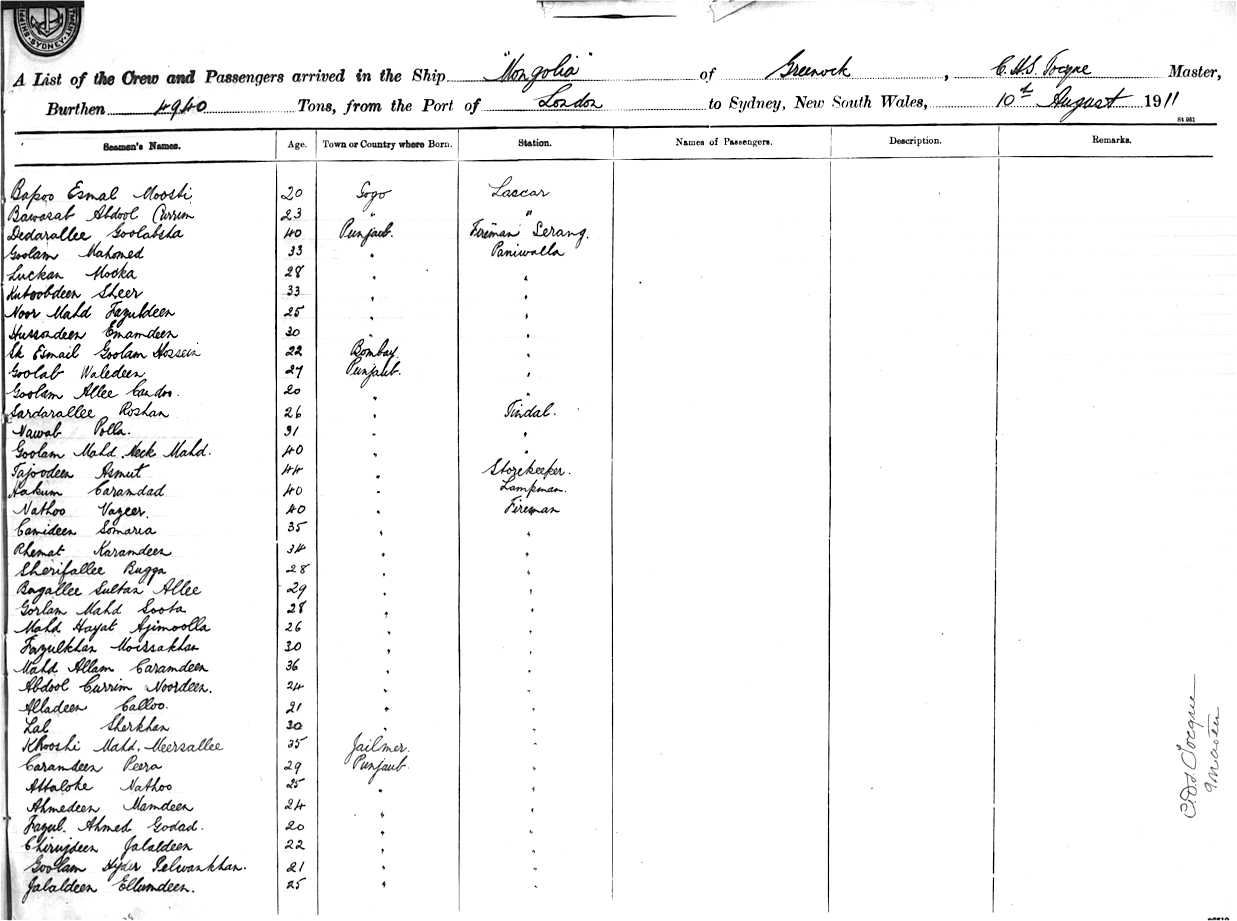 SYDNEY
A List of the Crew and Passengers arrived in the Ship "Mongolia" of Greenock, C.H.S. Tocque Master,
Burthen 4940 Tons, from the Port of London to Sydney, New South Wales, 10th August 1911
St 961
Seamen's Names. Age. Town or Country where Born. Station. Names of Passengers. Description. Remarks.
Bapoo Esmal Mooshi 20 Gogo Lascar
Bawasab Abdool Currim 23 " "
Dedarallee Goolabsha 40 Punjaub. Fireman Serang.
Goolam Mahomed 33 " Paniwalla
Luckan Mooka 28 " "
Kutoobdeen Sheer 33 " "
Noor Mahd Fazuldeen 25 " "
Hussondeen Emamdeen 30 " "
Sk Esmail Goolam Hossein 22 Bombay. "
Goolab Waledeen 27 Punjaub. "
Goolam Allee Candoo. 20 " "
Sardarallee Roshan 26 " Tindal.
Nawab Polla. 31 " "
Goolam Mahd. Neck Mahd. 40 " "
Tajoodeen Asmut 44 " Storekeeper.
Hakum Caramdad 40 " Lampman.
Nathoo Vazeer. 40 " Fireman
Camideen Somaria 35 " "
Rhemat Karamdeen 34 " "
Sherifallee Bugga 28 " "
Bagallee Sultan Allee 29 " "
Gorlam Mahd Soota 28 " "
Mahd Hayat Ajimoolla 26 " "
Fazulkhan Moissakhan 30 " "
Mahd Allam Caramdeen 36 " "
Abdool Currim Noordeen. 24 " "
Alladeen Calloo. 21 " "
Lal Sherkhan 30 " "
Khooshi Mahd. Meersallee 35 Jailmer. "
Caramdeen Peera 29 Punjaub. "
Attaloke Nathoo 25 " "
Ahmedeen Mamdeen 24 " "
Fazul. Ahmed Godad. 20 " "
Chirujdeen Jalaldeen 22 " "
Goolam Hyder Pelwankhan. 21 " "
Jalaldeen Ellumdeen. 25 " "
Tocque
Master